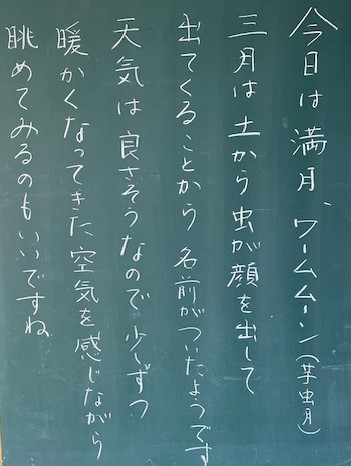 今日は満月、ワームムーン(芋虫月)
三月は土から虫が顔を出して
出てくることから名前がついたようです
天気は良さそうなので少しずつ
暖かくなってきた空気を感じながら
眺めてみるのもいいですね